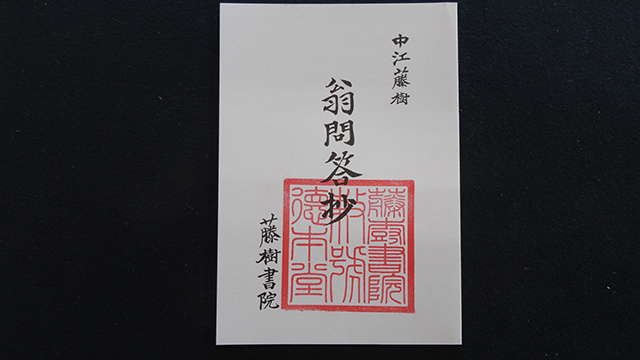 中江藤樹
翁問答抄
藤樹書院
藤樹書院
敕號
德本堂